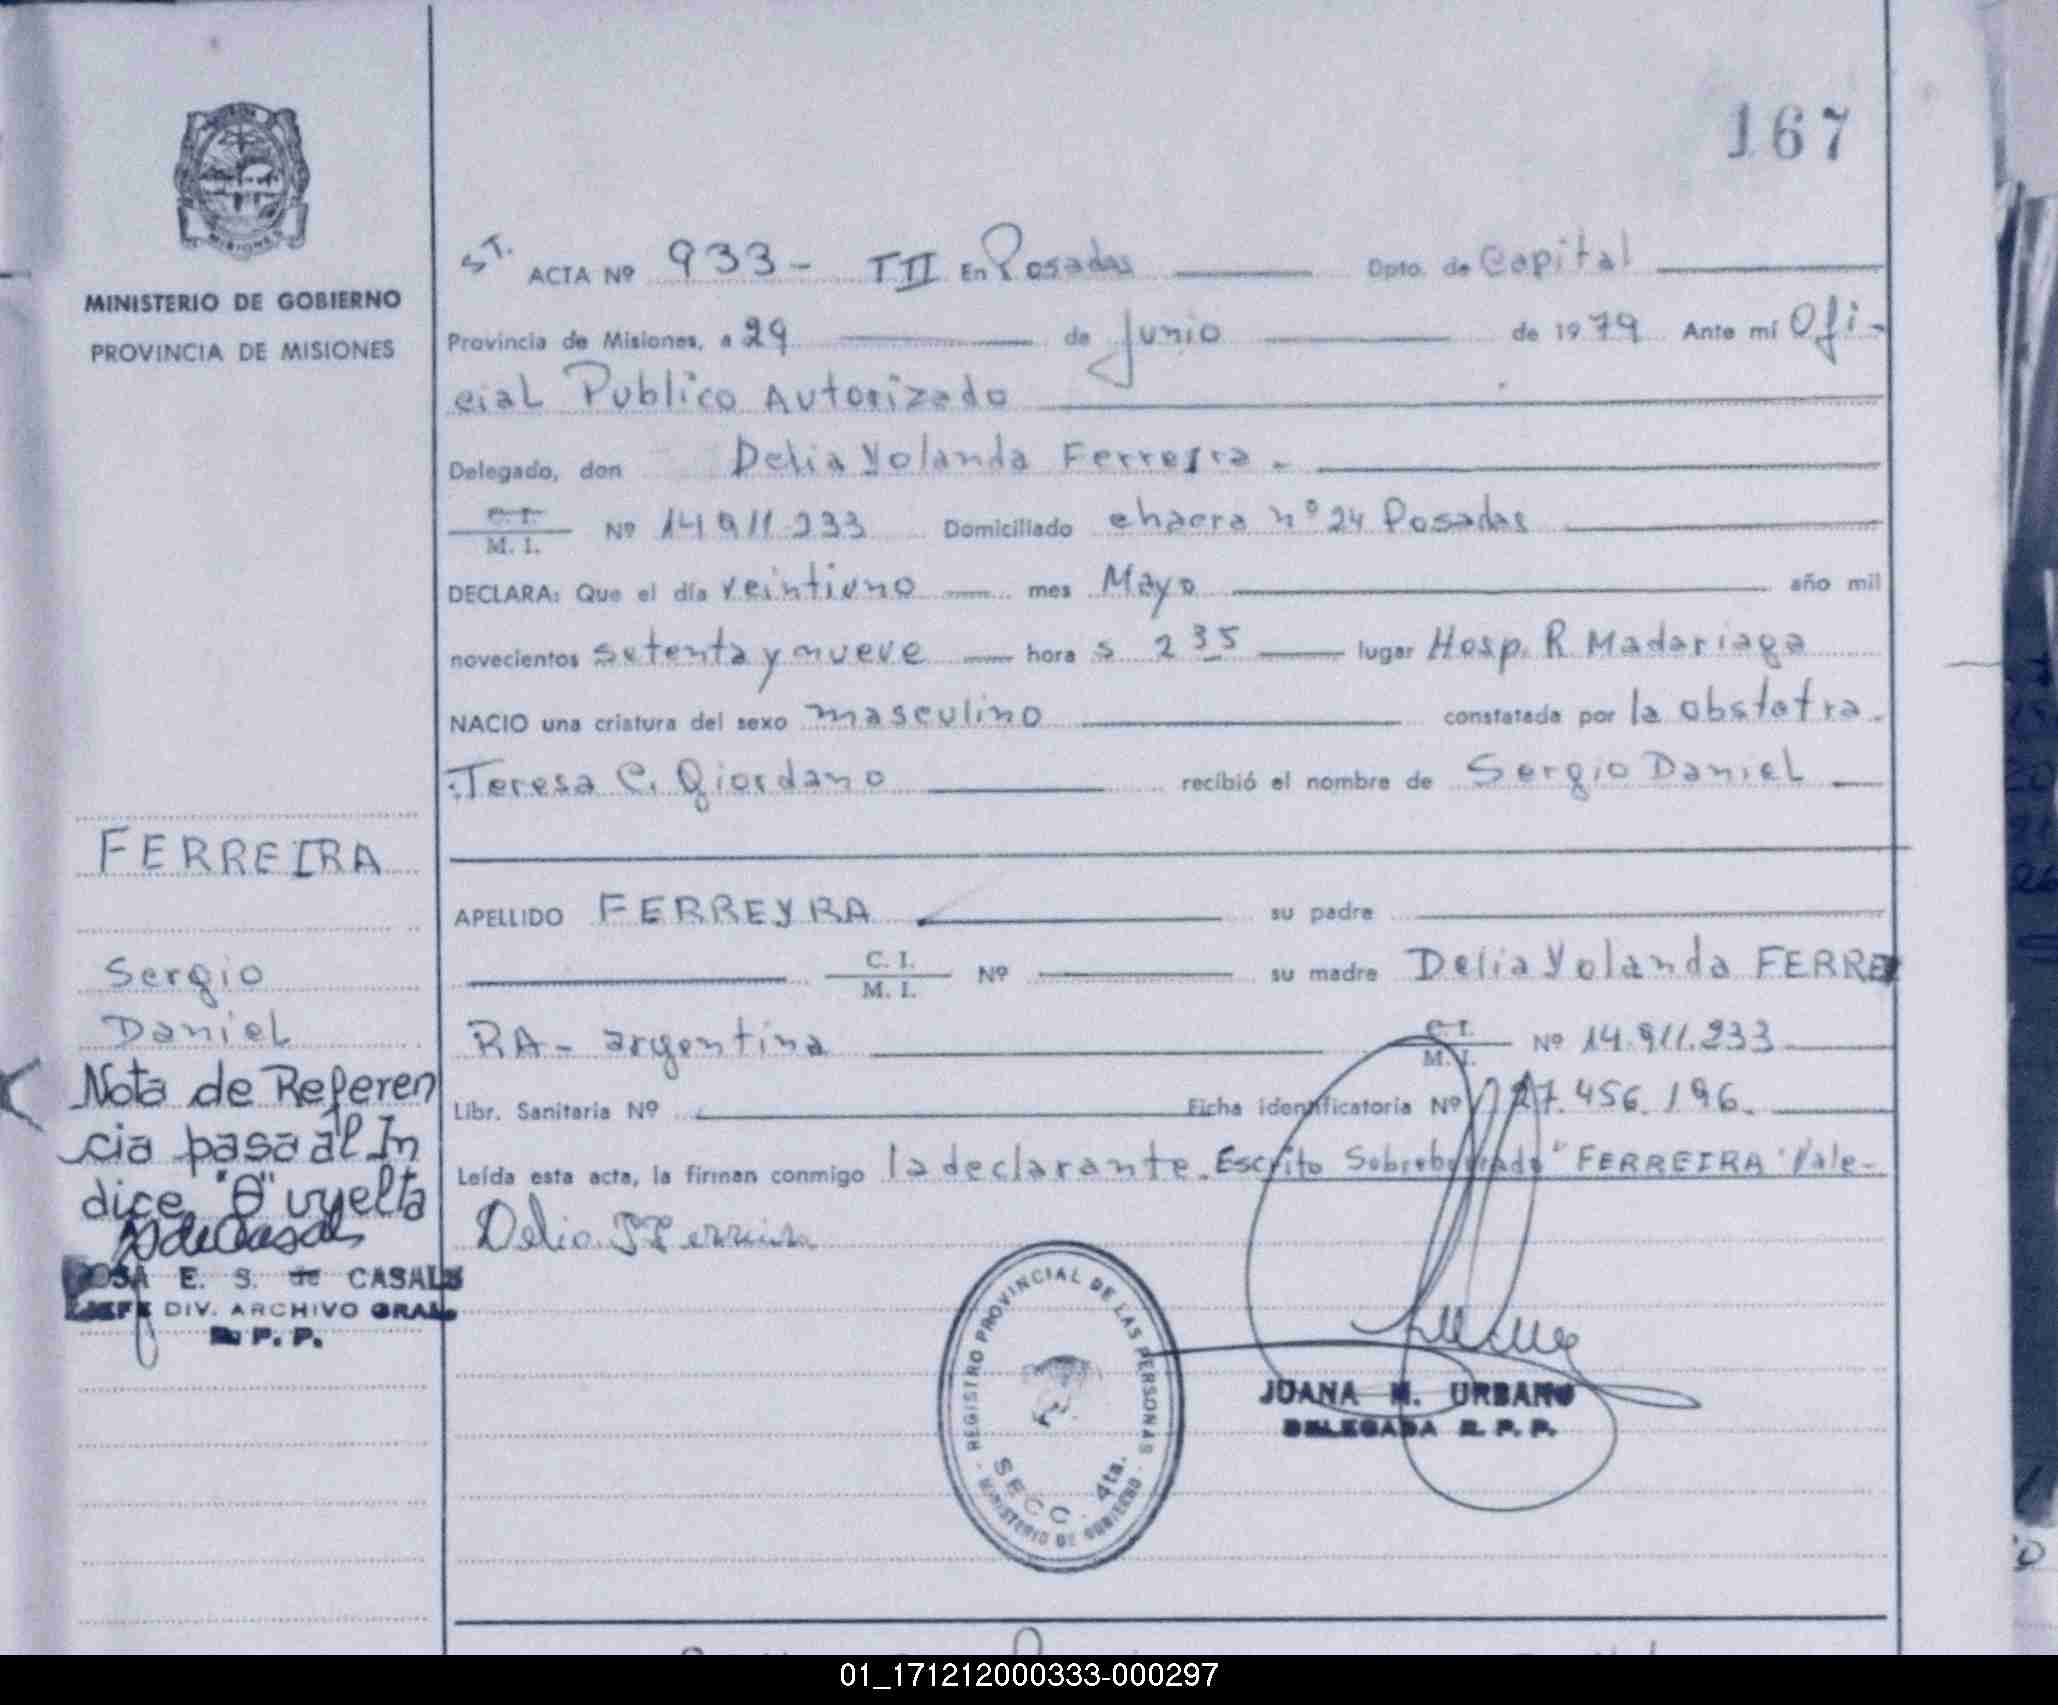 167
MINISTERIO DE GOBIERNO
PROVINCIA DE MISIONES
ST. ACTA Nº 933- TII En Posadas Dpto. de Capital
Provincia de Misiones, a 29 de Junio de 1979 Ante mí Ofi-
cial Publico Autorizado
Delegado, don Delia Yolanda Ferreira.
C. I. / M. I. Nº 14911.233 Domiciliado chacra nº 24 Posadas
DECLARA: Que el día veintiuno mes Mayo año mil
novecientos setenta y nueve hora s 2 35 lugar Hosp. R Madariaga
NACIO una criatura del sexo masculino constatada por la obstetra.
Teresa C. Giordano recibió el nombre de Sergio Daniel
APELLIDO FERREYRA su padre
C. I. / M. I. Nº su madre Delia Yolanda FERRE
RA- argentina C. I. / M. I. Nº 14.911.233
Libr. Sanitaria Nº Ficha identificatoria Nº 27.456.196.
Leída esta acta, la firman conmigo la declarante. Escrito Sobreborrado "FERREIRA" Vale-
Delia Y Ferreira
FERREIRA
Sergio
Daniel
Nota de Referen
cia pasa al In
dice "θ" vuelta
S de Casals
ROSA E. S. de CASALS
JEFE DIV. ARCHIVO GRAL.
R. P. P.
REGISTRO PROVINCIAL DE LAS PERSONAS
SECC. 4ta.
MINISTERIO DE GOBIERNO
JUANA M. URBANO
DELEGADA R. P. P.
01_171212000333-000297